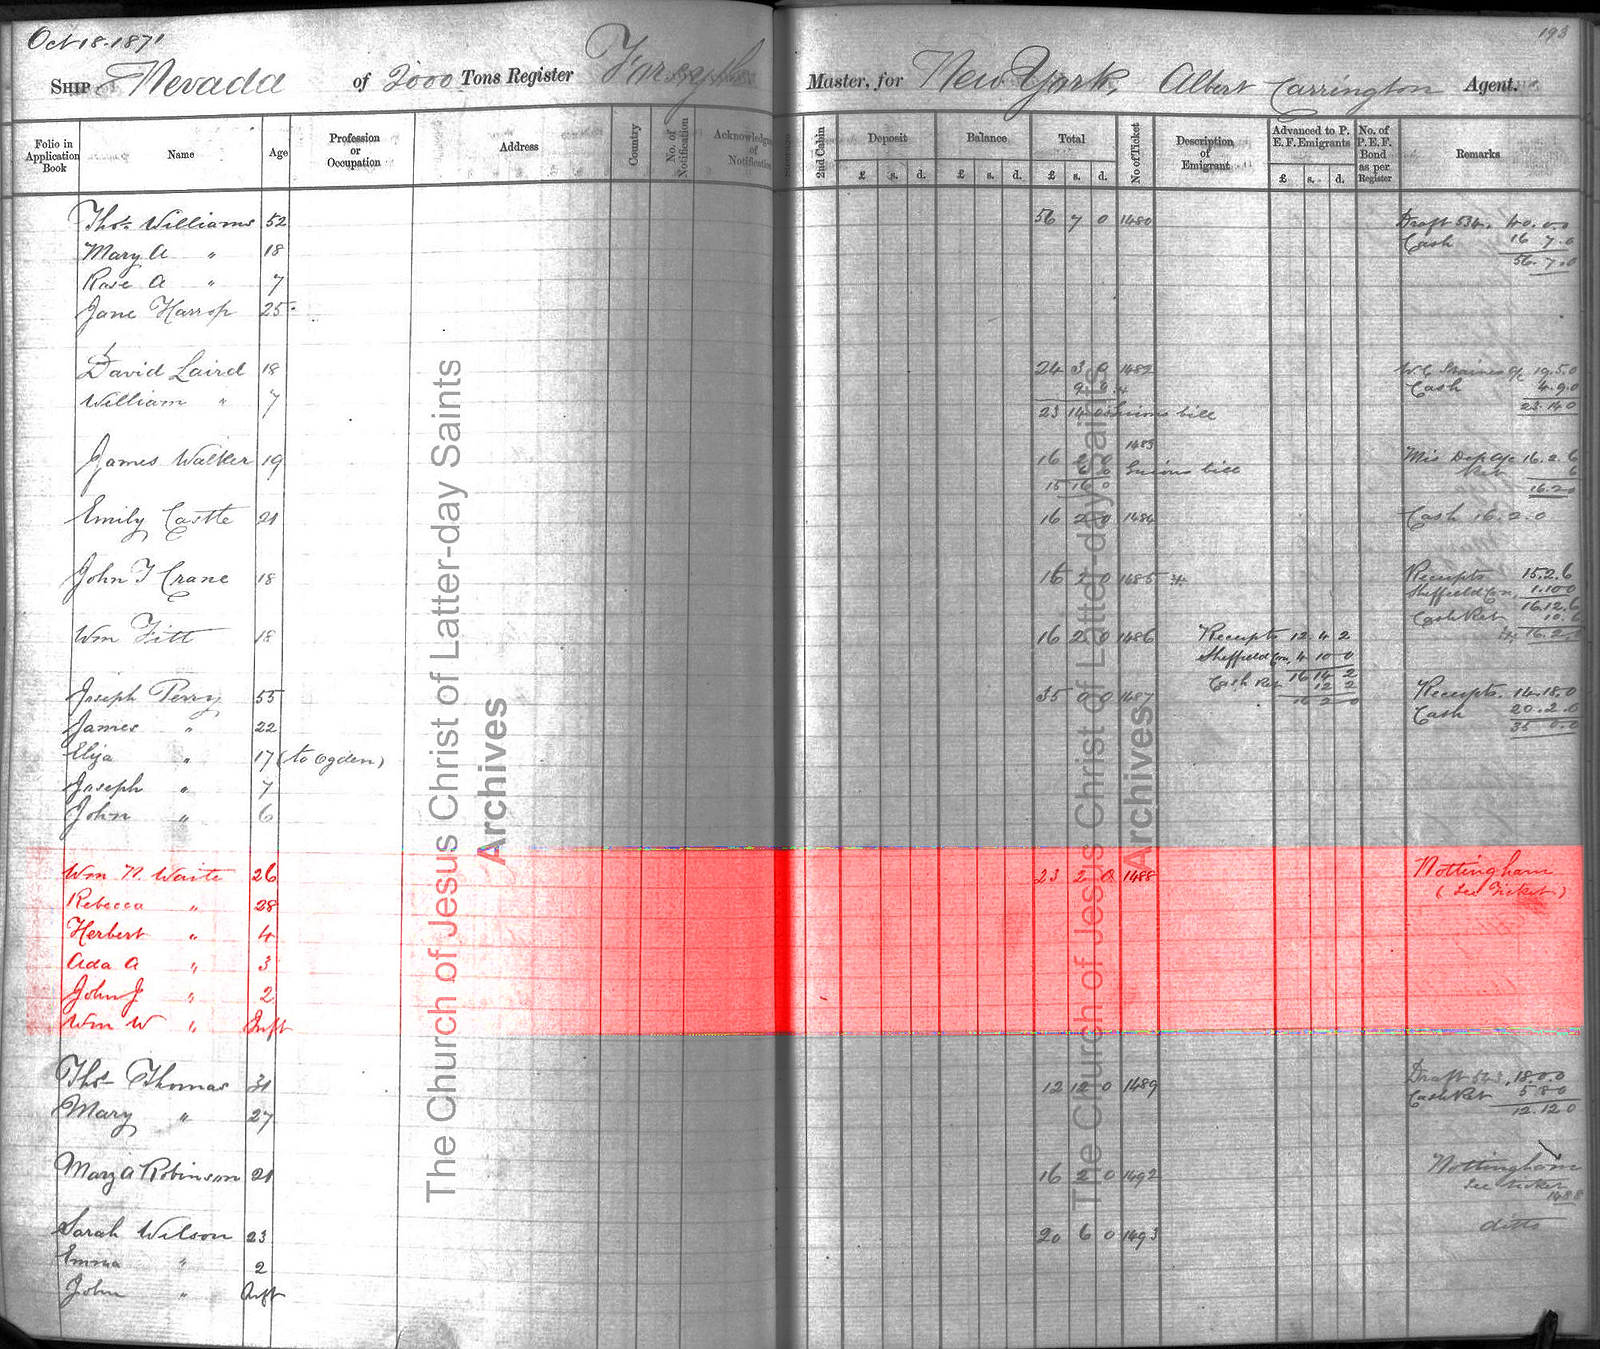 Oct 18. 1871
193
SHIP Nevada of 2000 Tons Register Forsyth Master, for New York, Albert Carrington Agent.
Folio in Application Book Name Age Profession or Occupation Address Country No. of Notification Acknowledgmt of Notification 2nd Cabin Deposit £ s. d. Balance £ s. d. Total £ s. d. No of Ticket Description of Emigrant Advanced to P. E. F. Emigrants £ s. d. No. of P. E. F. Bond as per Register Remarks
Thos. Williams 52 56 7 0 1480 Draft 534. 40.0.0
Mary A " 18 Cash 16 7.0
56.7.0
Rose A " 7
Jane Harrop 25
David Laird 18 24 3 0 1482 19.5.0
9 0 Cash 4.9.0
William " 7 23 14 0 Guions bill 23.14.0
James Walker 19 16 2 0 1483 Mis Dep a/c 16.2.6
6 0 Guions bill Ret 6
15 16 0 16.2.0
Emily Castle 21 16 2 0 1484 Cash 16.2.0
John T Crane 18 16 2 0 1485 Receipts 15.2.6
Sheffield Con. 1.10.0
16.12.6
Cash Ret 10.6
16.2.0
Wm Fitt 18 16 2 0 1486 Receipts 12 4 2
Sheffield Con, 4 10 0
16 14 2
Cash Ret 12 2
16 2 0
Joseph Perry 55 35 0 0 1487 Receipts. 14.18.0
James " 22 Cash 20.2.0
35 0.0
Eliza " 17 (to Ogden)
Joseph " 7
John " 6
Wm N. Waite 26 23 2 0 1488 Nottingham
(See Ticket)
Rebecca " 28
Herbert " 4
Ada A " 3
John J " 2
Wm W " Inft
Thos Thomas 31 12 12 0 1489 Draft 543, 18.0.0
Cash Ret 5 8 0
Mary " 27 12.12 0
Mary A Robinson 21 16 2 0 1492 Nottingham
See ticket
1488
Sarah Wilson 23 20 6 0 1493 ditto
Emma " 2
John " Inft
The Church of Jesus Christ of Latter-day Saints
Archives
The Church of Jesus Christ of Latter-day Saints
Archives